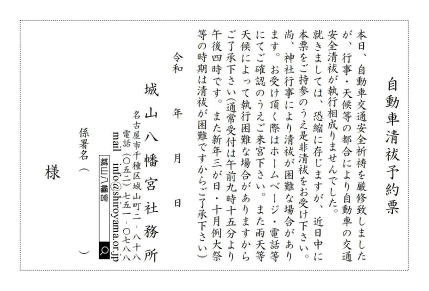 自動車清祓予約票
本日、自動車交通安全祈祷を厳修致しました
が、行事・天候等の都合により自動車の交通
安全清祓が執行相成りませんでした。
就きましては、恐縮に存じますが、近日中に
本票をご持参のうえ是非清祓をお受け下さい。
尚、神社行事により清祓が困難な場合があり
ます。お受け頂く際はホームページ・電話等
にてご確認のうえご来宮下さい。また雨天等
天候によって執行困難な場合がありますから
ご了承下さい(通常受付は午前九時十五分より
午後四時です。また新年三が日・十月例大祭
等の時期は清祓が困難ですからご了承下さい)
令和　年　月　日
城山八幡宮社務所
名古屋市千種区城山町二‐八十八
電話(〇五二)七五一‐〇七八八
mail　info@shiroyama.or.jp
城山八幡宮
係署名(　)
様